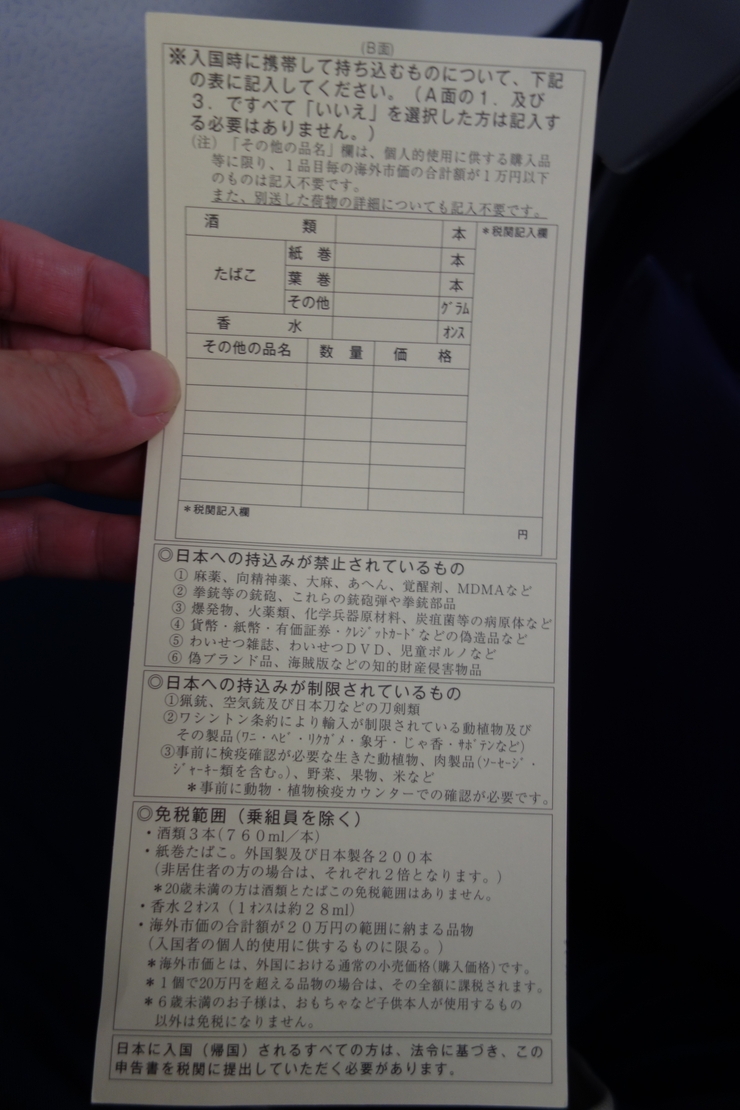 (B面)
※入国時に携帯して持ち込むものについて、下記
の表に記入してください。（A面の1．及び
3．ですべて「いいえ」を選択した方は記入す
る必要はありません。）
（注）「その他の品名」欄は、個人的使用に供する購入品
等に限り、1品目毎の海外市価の合計額が1万円以下
のものは記入不要です。
また、別送した荷物の詳細についても記入不要です。
酒 類 本 ＊税関記入欄
たばこ 紙 巻 本
葉 巻 本
その他 ｸﾞﾗﾑ
香 水 ｵﾝｽ
その他の品名 数 量 価 格
＊税関記入欄
円
◎日本への持込みが禁止されているもの
① 麻薬、向精神薬、大麻、あへん、覚醒剤、MDMAなど
② 拳銃等の銃砲、これらの銃砲弾や拳銃部品
③ 爆発物、火薬類、化学兵器原材料、炭疽菌等の病原体など
④ 貨幣・紙幣・有価証券・ｸﾚｼﾞｯﾄｶｰﾄﾞなどの偽造品など
⑤ わいせつ雑誌、わいせつDVD、児童ポルノなど
⑥ 偽ブランド品、海賊版などの知的財産侵害物品
◎日本への持込みが制限されているもの
①猟銃、空気銃及び日本刀などの刀剣類
②ワシントン条約により輸入が制限されている動植物及び
その製品(ﾜﾆ・ﾍﾋﾞ・ﾘｸｶﾞﾒ・象牙・じゃ香・ｻﾎﾞﾃﾝなど)
③事前に検疫確認が必要な生きた動植物、肉製品(ｿｰｾｰｼﾞ・
ｼﾞｬｰｷｰ類を含む。)、野菜、果物、米など
＊事前に動物・植物検疫カウンターでの確認が必要です。
◎免税範囲（乗組員を除く）
・酒類3本(760ml／本)
・紙巻たばこ。外国製及び日本製各200本
(非居住者の方の場合は、それぞれ2倍となります。)
＊20歳未満の方は酒類とたばこの免税範囲はありません。
・香水2ｵﾝｽ（1ｵﾝｽは約28ml)
・海外市価の合計額が20万円の範囲に納まる品物
(入国者の個人的使用に供するものに限る。)
＊海外市価とは、外国における通常の小売価格(購入価格)です。
＊1個で20万円を超える品物の場合は、その全額に課税されます。
＊6歳未満のお子様は、おもちゃなど子供本人が使用するもの
以外は免税になりません。
日本に入国（帰国）されるすべての方は、法令に基づき、この
申告書を税関に提出していただく必要があります。